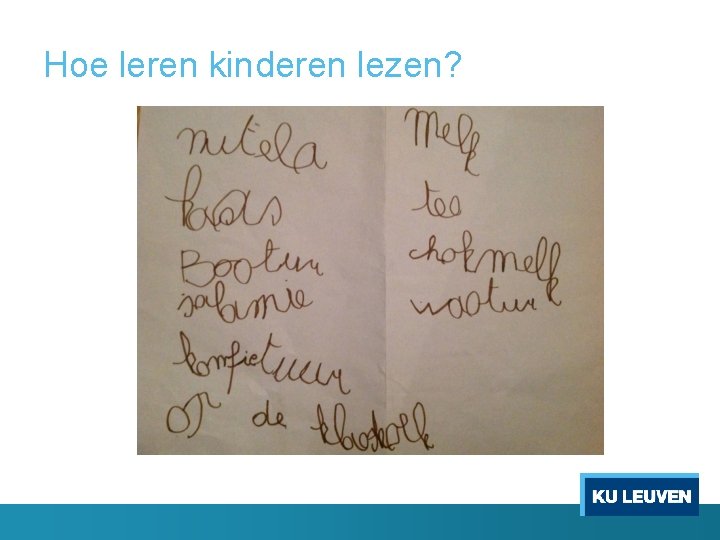 Hoe leren kinderen lezen?
mutela
kaas
Bootur
salamie
komfietuuur
op de
Melk
tee
chokmelk
wootur
KU LEUVEN